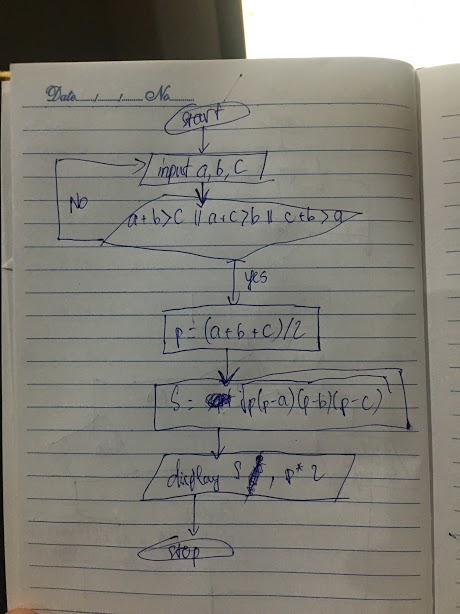 Date...../...../..... No........
start
input a, b, c
No
a+b>c || a+c>b || c+b>a
yes
p = (a+b+c)/2
S = √p(p-a)(p-b)(p-c)
display S , p* 2
stop